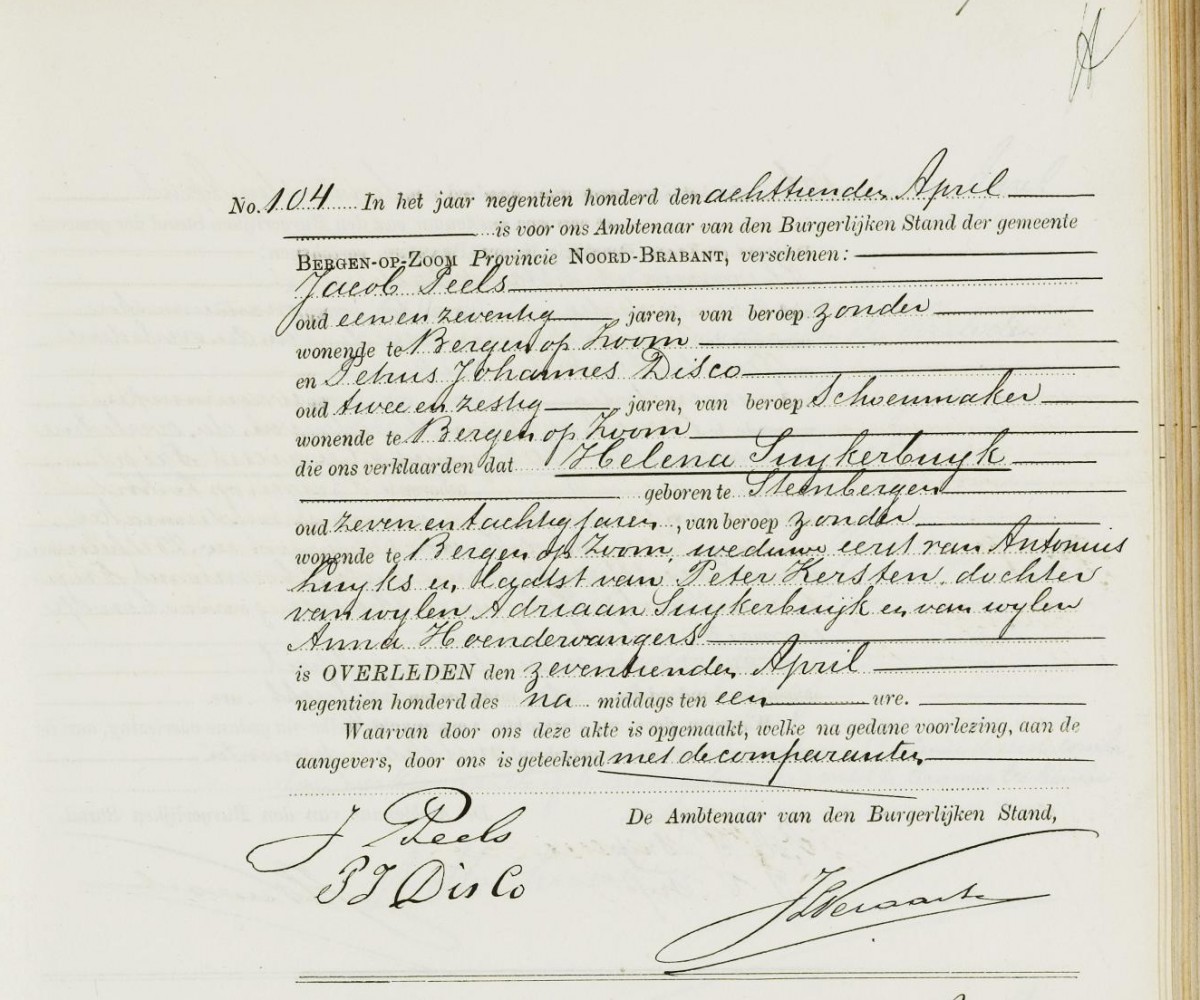 No. 104 In het jaar negentien honderd den achttienden April
is voor ons Ambtenaar van den Burgerlijken Stand der gemeente
BERGEN-OP-ZOOM Provincie NOORD-BRABANT, verschenen:
Jacob Peels
oud een en zeventig jaren, van beroep zonder
wonende te Bergen op Zoom
en Petrus Johannes Disco
oud twee en zestig jaren, van beroep Schoenmaker
wonende te Bergen op Zoom
die ons verklaarden dat Helena Suykerbuyk
geboren te Steenbergen
oud zeven en tachtig jaren, van beroep zonder
wonende te Bergen op Zoom, weduwe eerst van Antonius
Huyks en laatst van Peter Kersten, dochter
van wylen Adriaan Suykerbuijk en van wylen
Anna Hoendervangers
is OVERLEDEN den zeventienden April
negentien honderd des na middags ten een ure.
Waarvan door ons deze akte is opgemaakt, welke na gedane voorlezing, aan de
aangevers, door ons is geteekend met de comparanten
De Ambtenaar van den Burgerlijken Stand,
J Peels
P J Disco